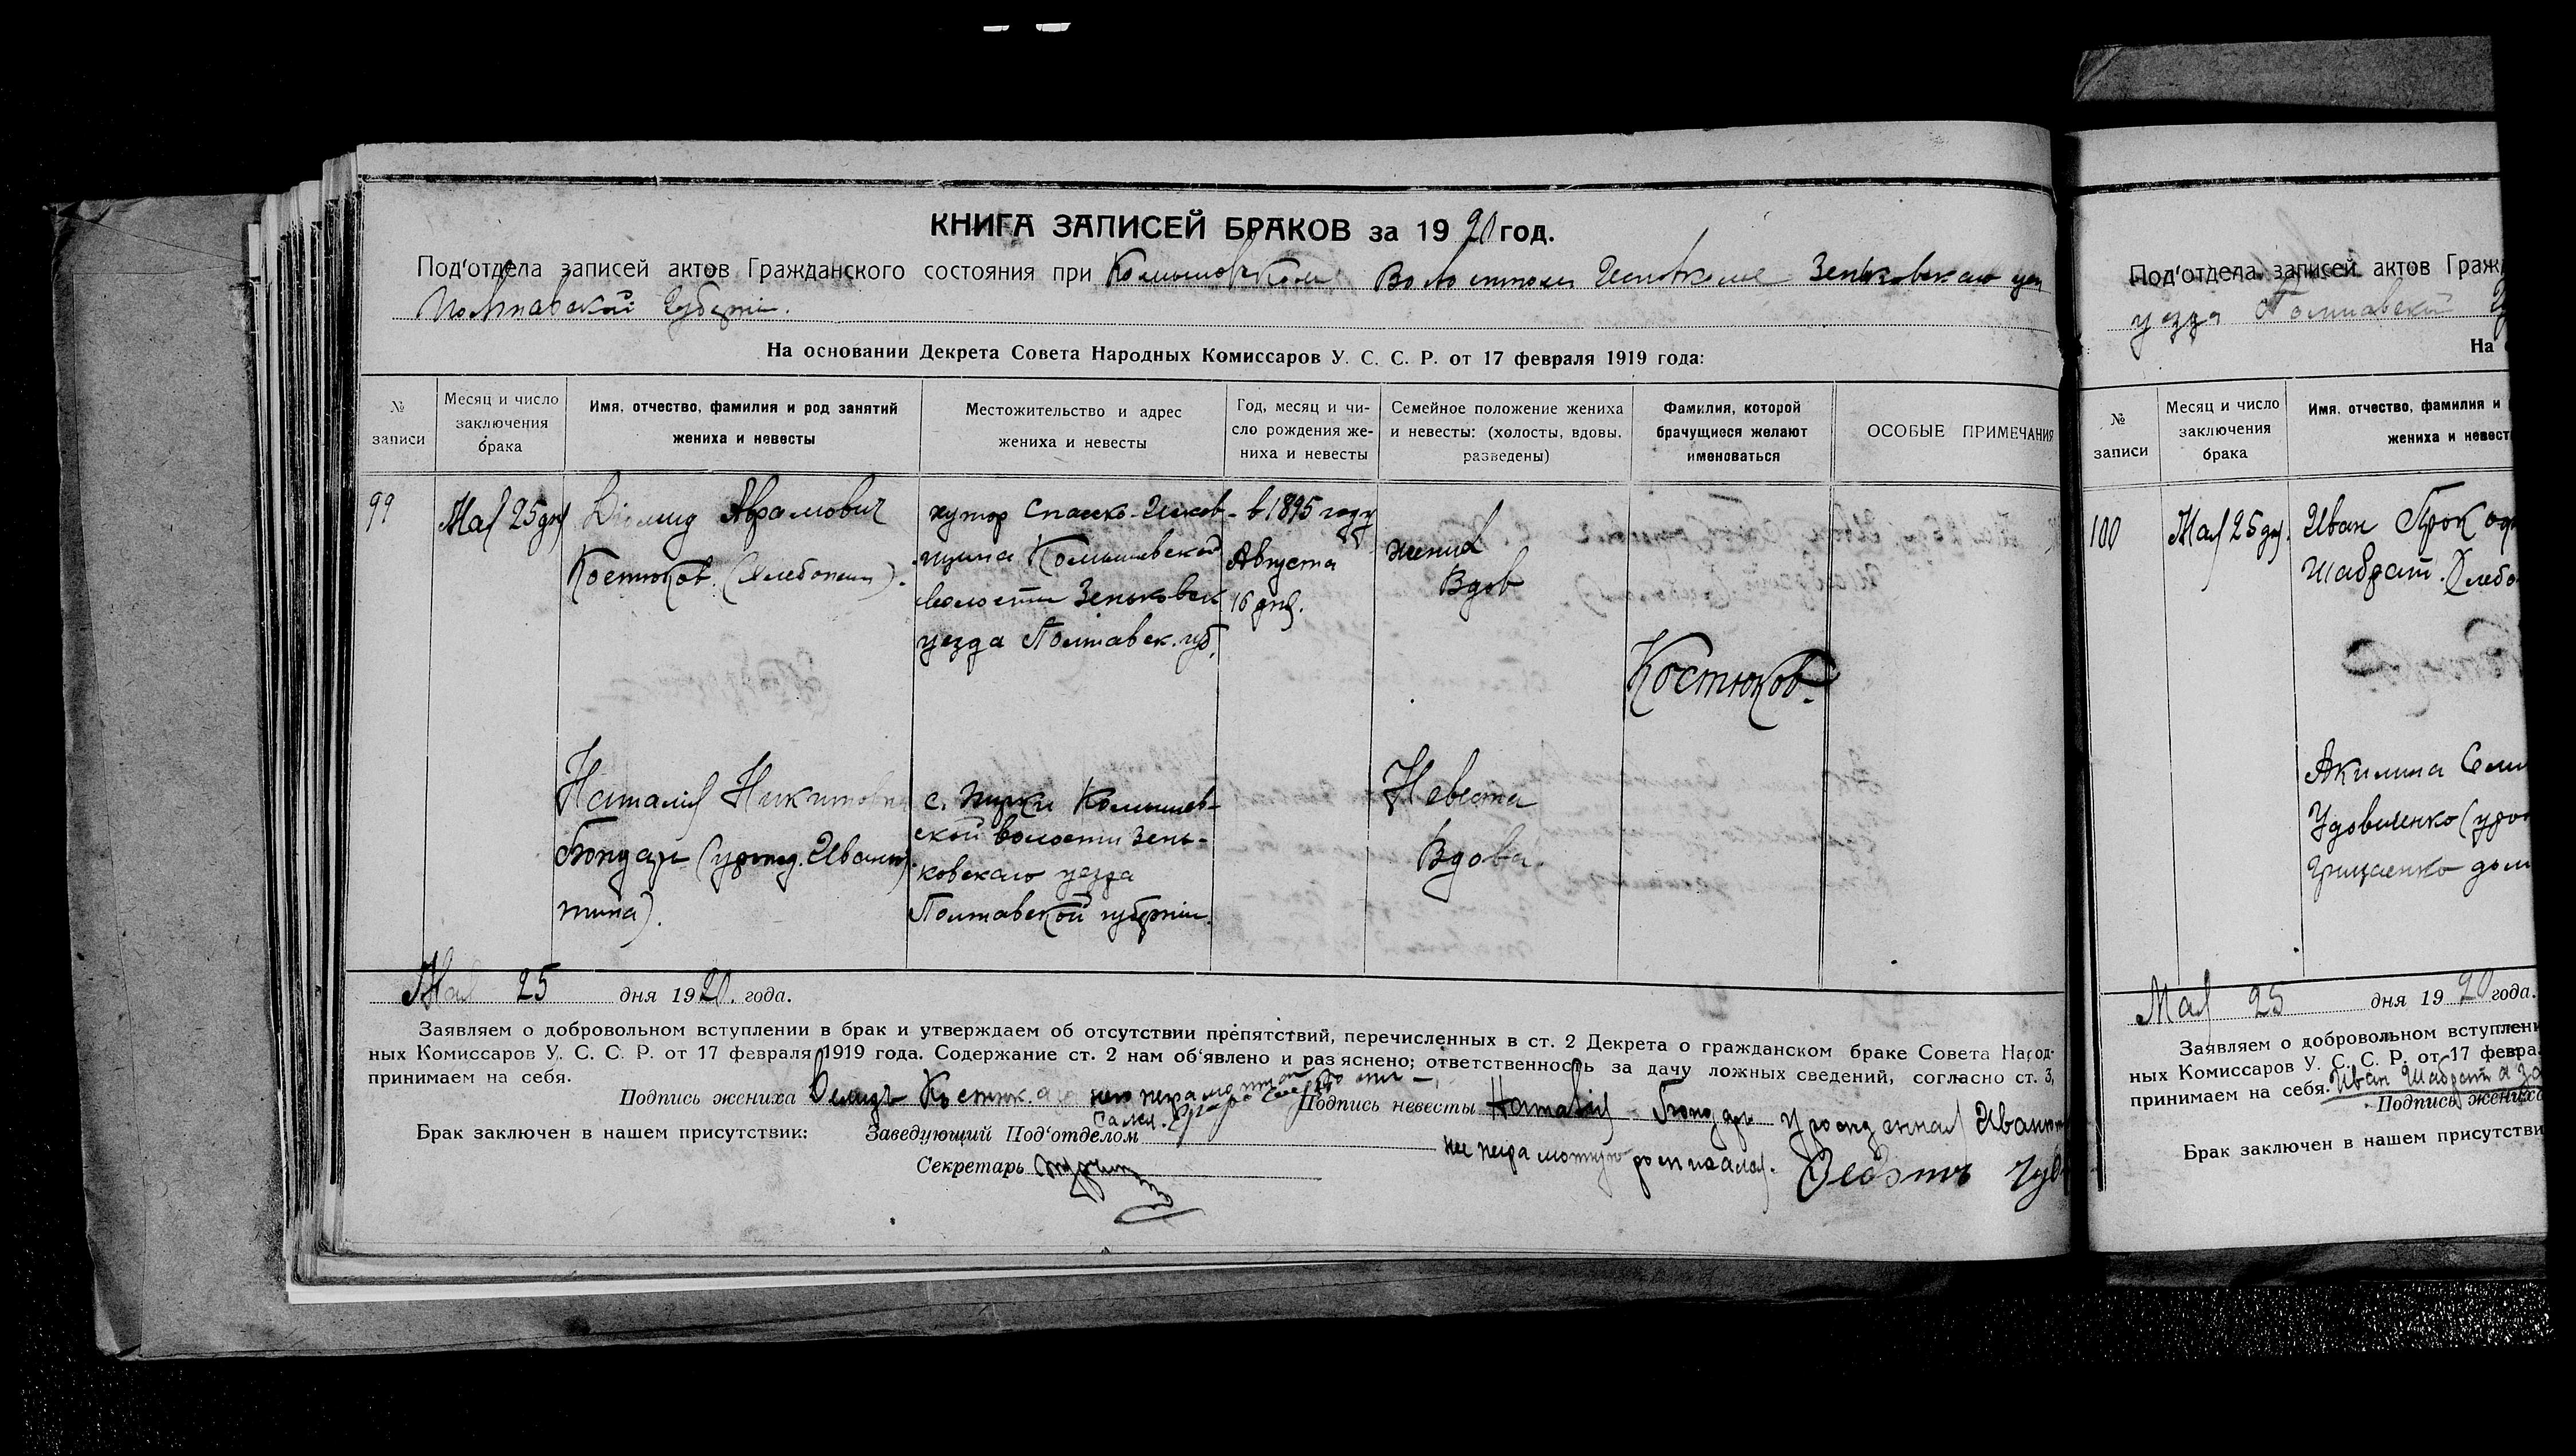 КНИГА ЗАПИСЕЙ БРАКОВ за 1920 год.
Под'отдела записей актов Гражданского состояния при Волостном Исполкоме Зеньковскаго уез
Полтавской Губернии.
На основании Декрета Совета Народных Комиссаров У. С. С. Р. от 17 февраля 1919 года:
№ записи
Месяц и число заключения брака
Имя, отчество, фамилия и род занятий жениха и невесты
Местожительство и адрес жениха и невесты
Год, месяц и число рождения жениха и невесты
Семейное положение жениха и невесты: (холосты, вдовы, разведены)
Фамилия, которой брачущиеся желают именоваться
ОСОБЫЕ ПРИМЕЧАНИЯ
99
Мая 25 дня
Диомид Аврамович
Костюков. (Хлебопаш).
хутор Спасско-
Комышевской
волости Зеньковск
уезда Полтавск. губ.
в 1895 году
Августа
16 дня.
жених
Вдов
Костюков.
Наталия Никитовна
Бондарь (урожд. Иваню
тина).
с. Комышев-
ской волости Зень-
ковскаго уезда
Полтавской губернии.
Невеста
Вдова.
Мая 25 дня 1920. года.
Заявляем о добровольном вступлении в брак и утверждаем об отсутствии препятствий, перечисленных в ст. 2 Декрета о гражданском браке Совета Народ-
ных Комиссаров У. С. С. Р. от 17 февраля 1919 года. Содержание ст. 2 нам об'явлено и раз'яснено; ответственность за дачу ложных сведений, согласно ст. 3,
принимаем на себя.
Подпись жениха
Подпись невесты Наталия Бондарь Урожденная
Брак заключен в нашем присутствии: Заведующий Под'отделом
Секретарь
Под'отдела записей актов Граж
уезда Полтавской
На
№ записи
Месяц и число заключения брака
Имя, отчество, фамилия и
жениха и невест
100
Мая 25 дн.
Иван Прокоф
Шабрат. Хлебо
Акилина Сем
Удовиченко (урож
Грицаенко дом
Мая 25 дня 1920 года.
Заявляем о добровольном вступлени
ных Комиссаров У. С. С. Р. от 17 февра
принимаем на себя. Иван Шабрат а за
Подпись жениха
Брак заключен в нашем присутстви